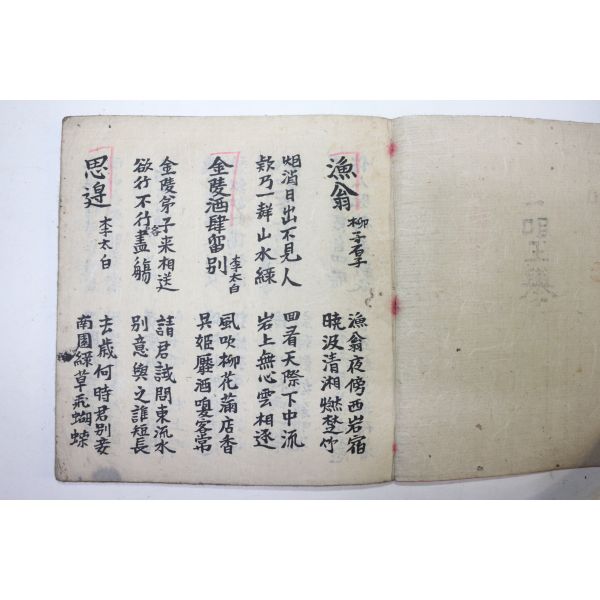 漁翁 柳子厚
漁翁夜傍西岩宿
曉汲清湘燃楚竹
烟消日出不見人
欸乃一聲山水綠
回看天際下中流
岩上無心雲相逐
金陵酒肆留別 李太白
風吹柳花滿店香
吳姬壓酒喚客常
金陵弟子来相送
欲行不行各盡觴
請君試問東流水
別意與之誰短長
思邊 李太白
去歲何時君別妾
南園綠草飛蝴蝶